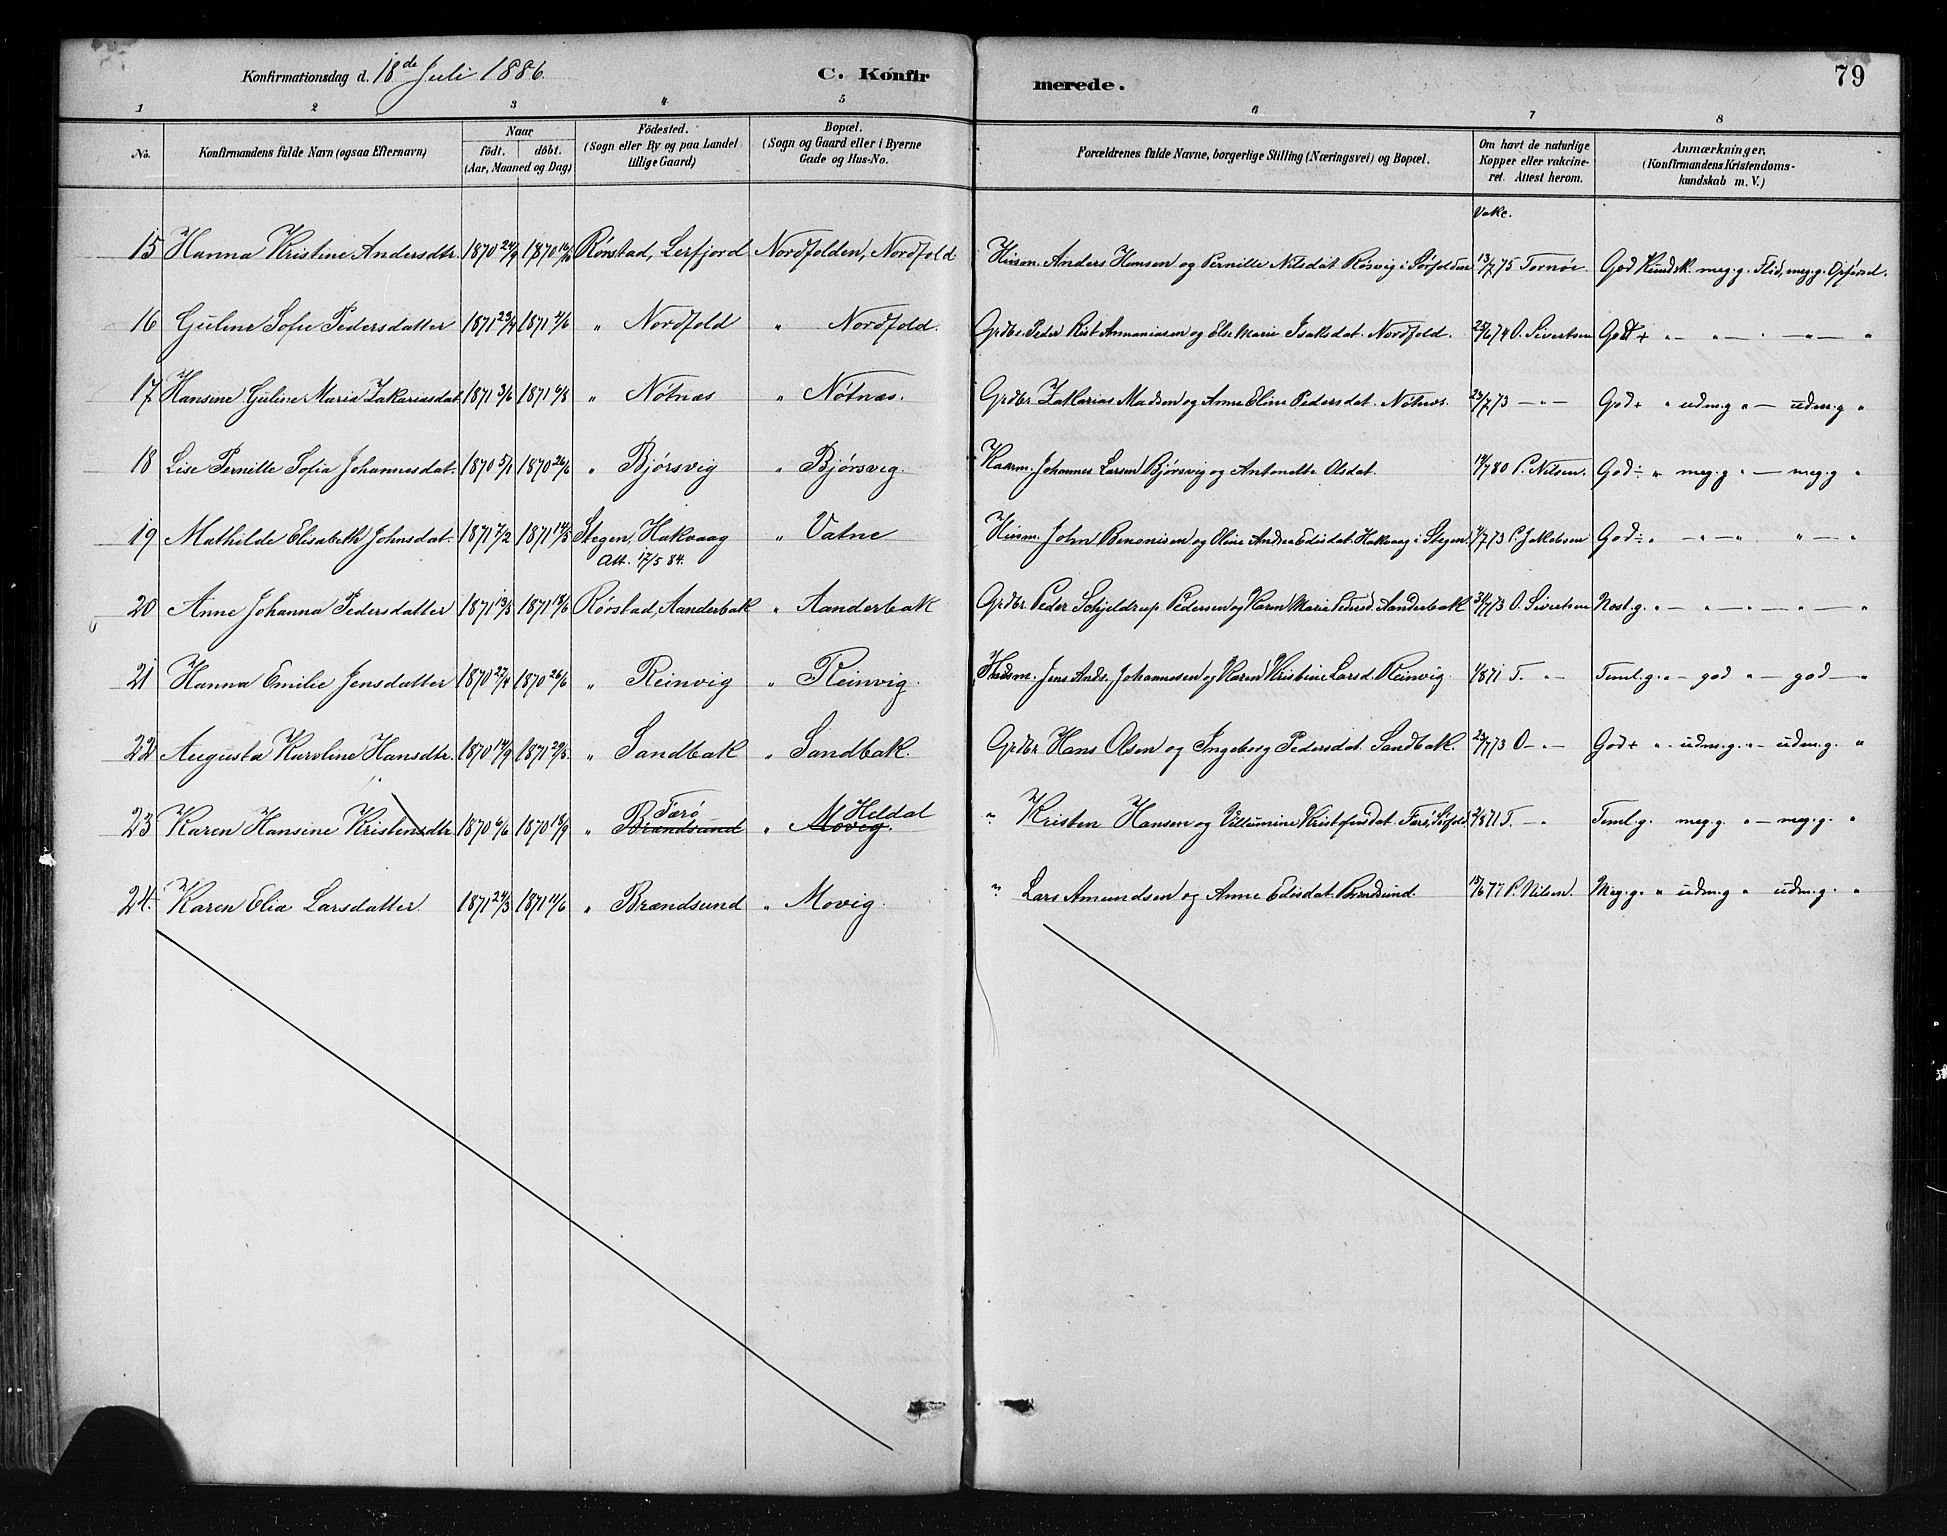 Konfirmationsdag d. 18de Juli 1886. C. Konfirmerede. 79
1 2 3 4 5 6 7 8
No. Konfirmandens fulde Navn (ogsaa Efternavn) Naar födt. döbt. (Aar, Maaned og Dag) Födested. (Sogn eller By og paa Landet tillige Gaard) Bopæl. (Sogn og Gaard eller i Byerne Gade og Hus-No. Forældrenes fulde Navne, borgerlige Stilling (Næringsvei) og Bopæl. Om havt de naturlige Kopper eller vakcineret. Attest herom. Anmærkninger, (Konfirmandens Kristendomskundskab m. V.)
Vakc.
15 Hanna Kristine Andersdtr. 1870 24/9 1870 16/10 Rørstad, Lerfjord Nordfolden, Nordfold Husm. Anders Hansen og Pernille Nilsdat Røsvig i Sørfolden 13/7 75 Tornøe. God Kundsk. meg. g. Flid, meg. g. Opførsel.
16 Guline Sofie Pedersdatter 1871 23/4 1871 4/6 " Nordfold " Nordfold. Grdbr. Peder Krist Annaniassen og Else Marie Isaksdat. Nordfold. 25/6 74 O. Sivertsen God+ " — " — " — "
17 Hansine Guline Maria Zakariasdat 1871 3/6 1871 6/8 " Nøtnæs " Nøtnæs. Grdbr Zakarias Madsen og Anne Eline Pedersdat. Nøtnæs. 23/7 73 — " — God+ " udm. g " — udm. g "
18 Lise Pernille Sofia Johannesdat. 1870 5/1 1870 26/6 " Bjørsvig " Bjørsvig. Kaarm. Johannes Larsen Bjørsvig og Antonette Olsdat. 14/7 80 P. Nilsen. God÷ " meg. g " — meg. g "
19 Mathilde Elisabeth Johnsdat. 1871 7/2 1871 14/5 Stegen, Hakvaag " Vatne Husm. John Benonisen og Eline Andrea Edisdat Hakvaag i Stegen. 4/7 73 P. Jakobsen God÷ " — " — " — "
Att. 12/5 84.
20 Anne Johanna Pedersdatter 1871 19/3 1871 18/6 Rørstad, Aanderbak " Aanderbak Grdbr Peder Schjeldrup Pedersen og Karen Marie Pedersd. Aanderbak 31/7 73 O. Sivertsen Nost. g. " — " — " — "
21 Hanna Emilie Jensdatter 1870 27/4 1870 26/6 " Reinvig " Reinvig. Husm. Jens Ands. Johannesen og Karen Kristine Larsd. Reinvig. 1/8 71 T. " — Teml. g. " — god " — god — "
22 Augusta Karoline Hansdtr. 1870 14/9 1871 29/5 " Sandbak " Sandbak. Grdbr. Hans Olsen og Ingeborg Pedersdat. Sandbak. 23/7 73 O — " — God+ " udm. g. " — udm. g. "
Farø Heldal
23 Karen Hansine Kristensdtr 1870 6/6 1870 18/9 " Brændsund " Movig. " Kristen Hansen og Villumine Kristofersdat. Farø, Sørfold. 2/8 71 T. — " Teml. g. meg. g. " — meg. g. "
24. Karen Elia Larsdatter. 1871 24/3 1871 11/6 " Brændsund " Movig. " Lars Amundsen og Anne Edisdat. Brændsund. 15/6 77 P. Nilsen. Meg. g. " udm. g " udm. g. "